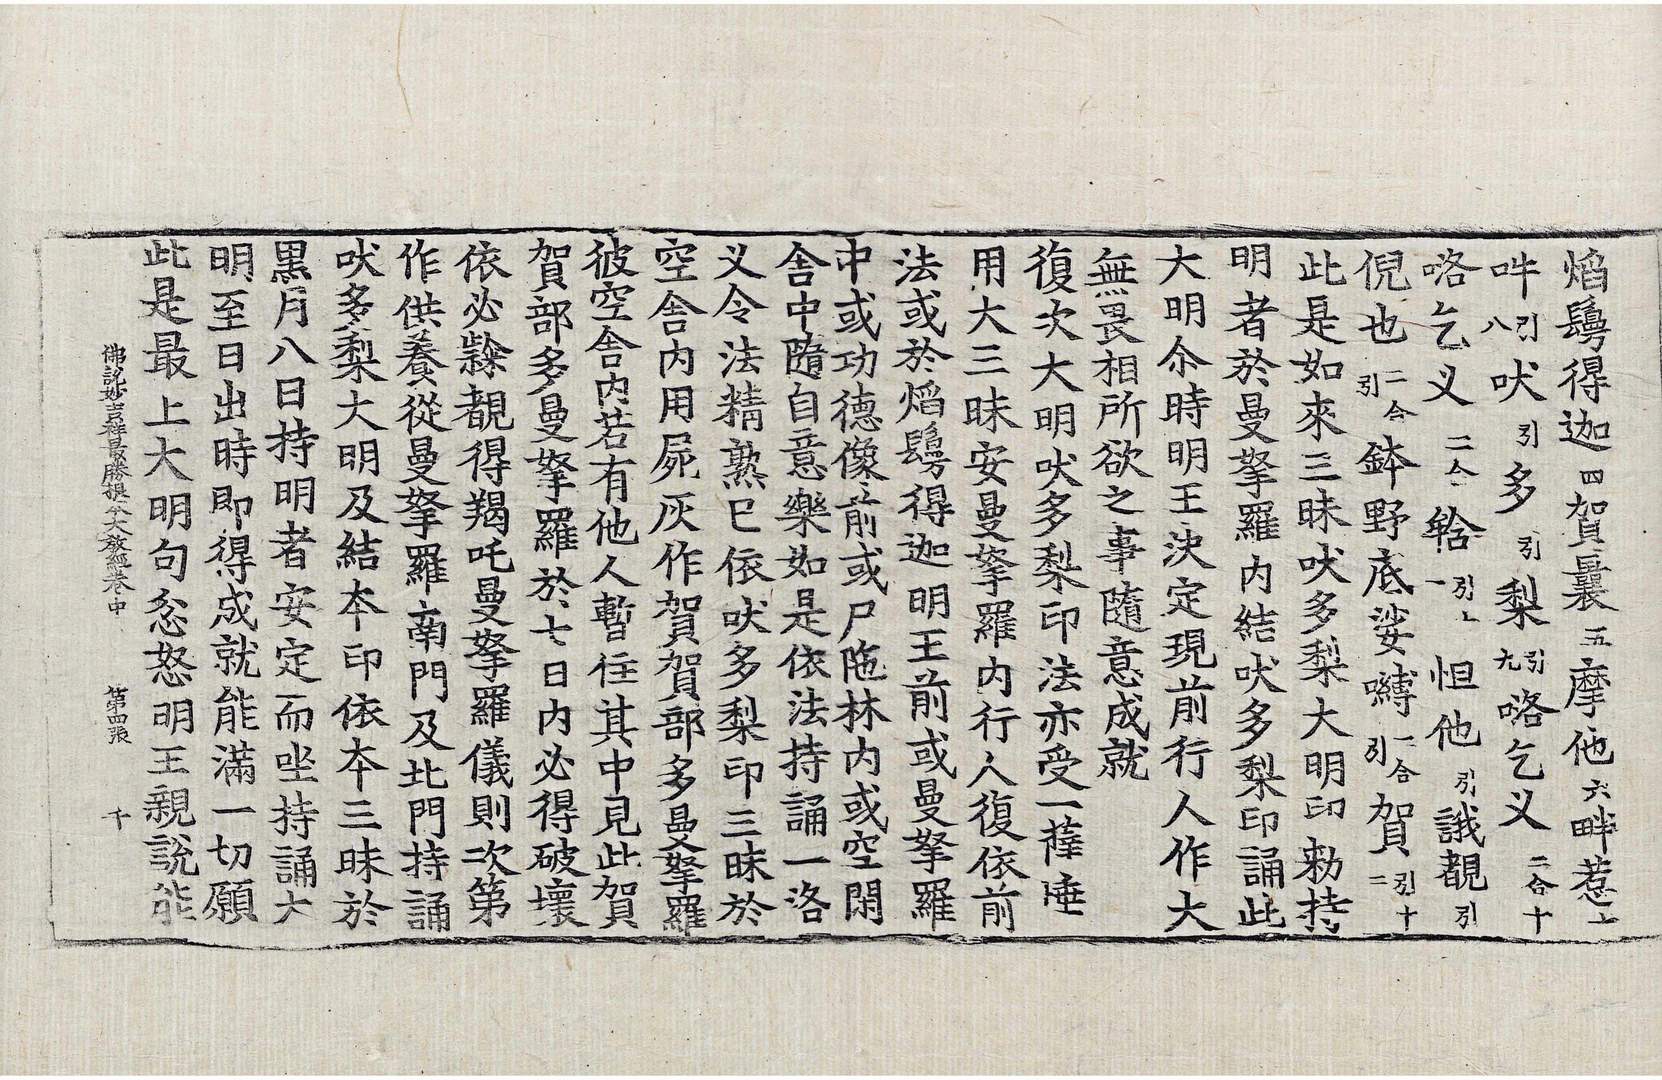 焰鬘得迦四賀曩五摩他六畔惹七
吽引八吠引多引梨引九咯乞叉二合十
咯乞叉二合䶎引一怛他引誐覩引
倪也二合引鉢野底娑嚩二合引賀引十二
此是如來三昧吠多梨大明印勑持
明者於曼拏羅内結吠多梨印誦此
大明尒時明王決定現前行人作大
無畏相所欲之事隨意成就
復次大明吠多梨印法亦受一薩埵
用大三昧安曼拏羅内行人復依前
法或於焰鬘得迦明王前或曼拏羅
中或功德像前或尸陁林内或空閑
舍中隨自意樂如是依法持誦一洛
叉令法精熟已依吠多梨印三昧於
空舍内用屍灰作賀賀部多曼拏羅
彼空舍内若有他人暫往其中見此賀
賀部多曼拏羅於七日内必得破壞
依必隸覩得羯吒曼拏羅儀則次第
作供養從曼拏羅南門及北門持誦
吠多梨大明及結本印依本三昧於
黒月八日持明者安定而坐持誦大
明至日出時即得成就能滿一切願
此是最上大明句忿怒明王親說能
佛說妙吉祥最勝根本大教經卷中 第四張 千